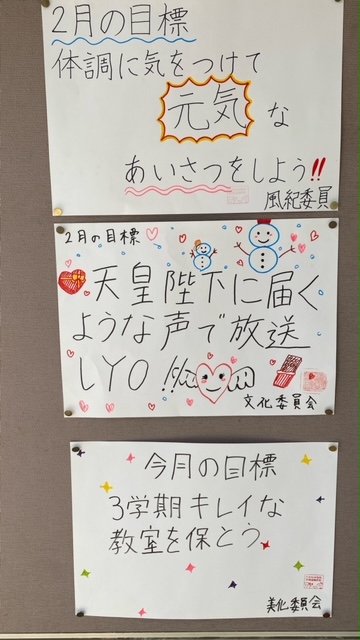 2月の目標
体調に気をつけて
元気な
あいさつをしよう!!
風紀委員
2月の目標
天皇陛下に届く
ような声で放送
しYO!!
文化委員会
今月の目標
3学期キレイな
教室を保とう
美化委員会